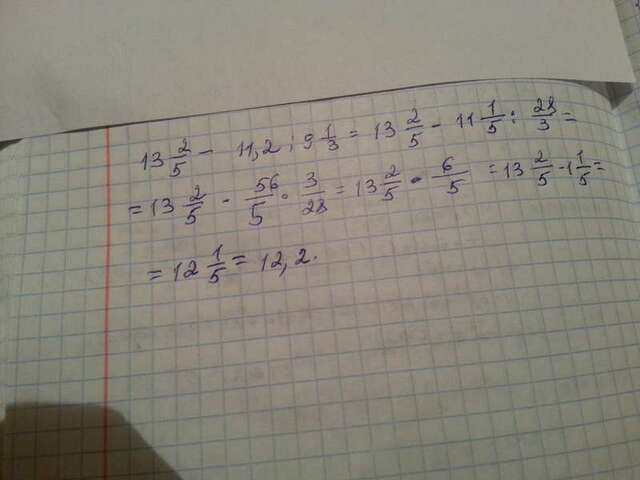 13 2/5 - 11,2 : 9 1/3 = 13 2/5 - 11 1/5 : 28/3 =
= 13 2/5 - 56/5 · 3/28 = 13 2/5 - 6/5 = 13 2/5 - 1 1/5 =
= 12 1/5 = 12,2.